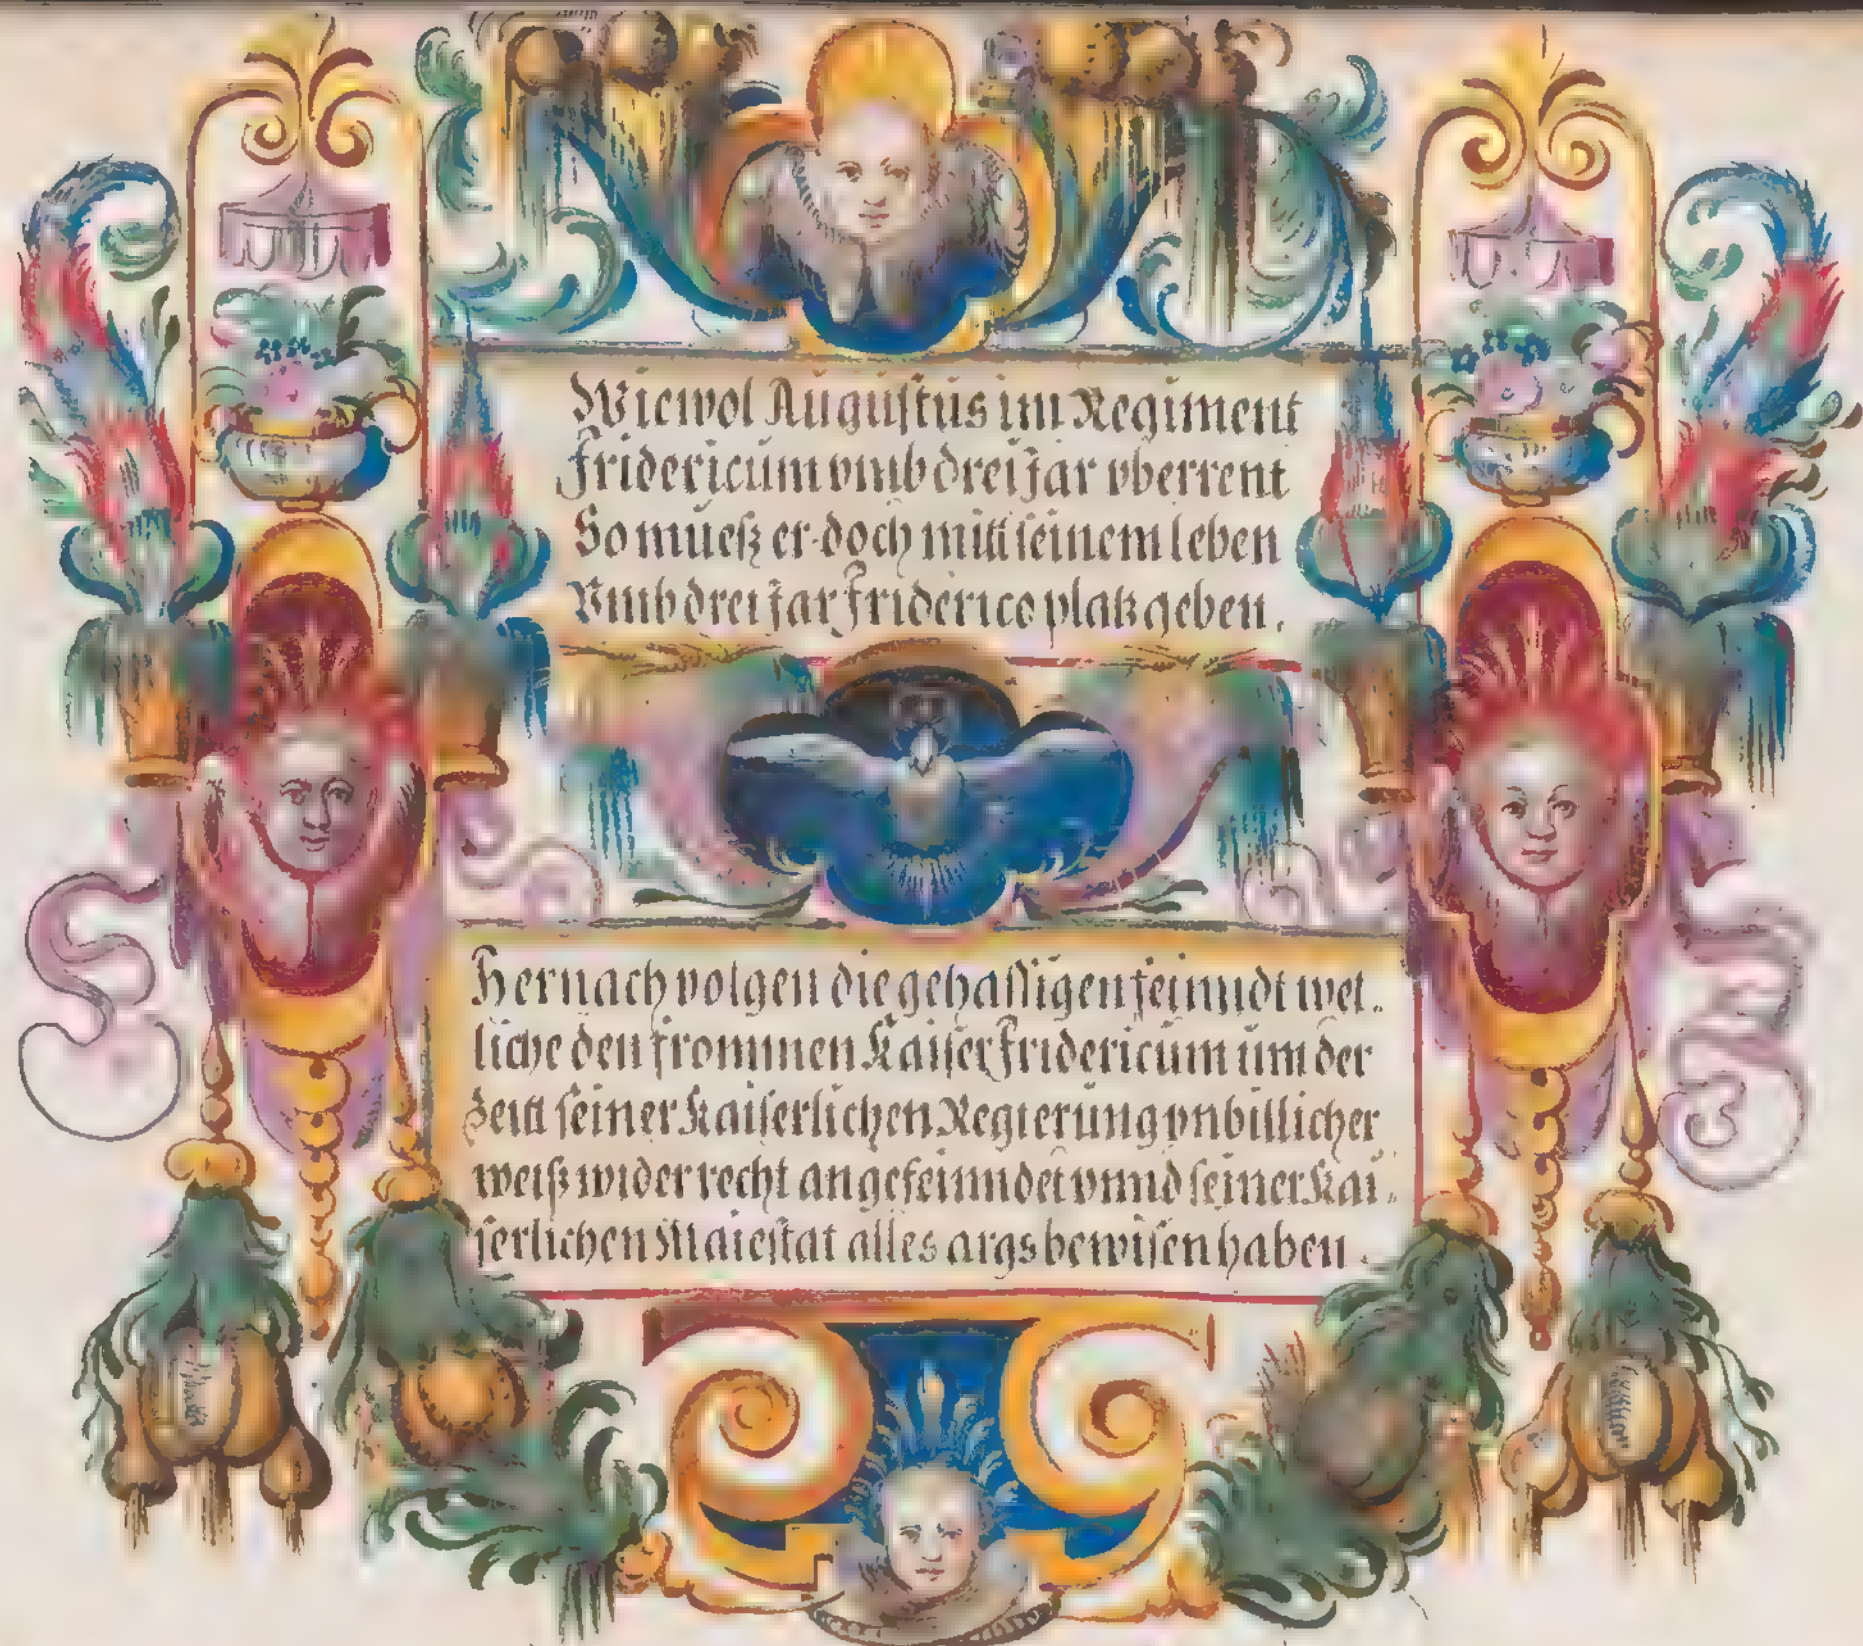 Wiewol Augustus im Regiment
Fridericum vmb drei jar vberrent
So muesz er doch mitt seinem leben
Vmb drei jar Friderico platz geben.
Hernach volgen die gehassigen feinndt wel.
liche den frommen Kaiser Fridericum üm der
Zeitt seiner Kaiserlichen Regierung vnbillicher
weiß wider recht angefeinndet vnnd seiner Kai.
serlichen Maiestat alles args bewisen haben.